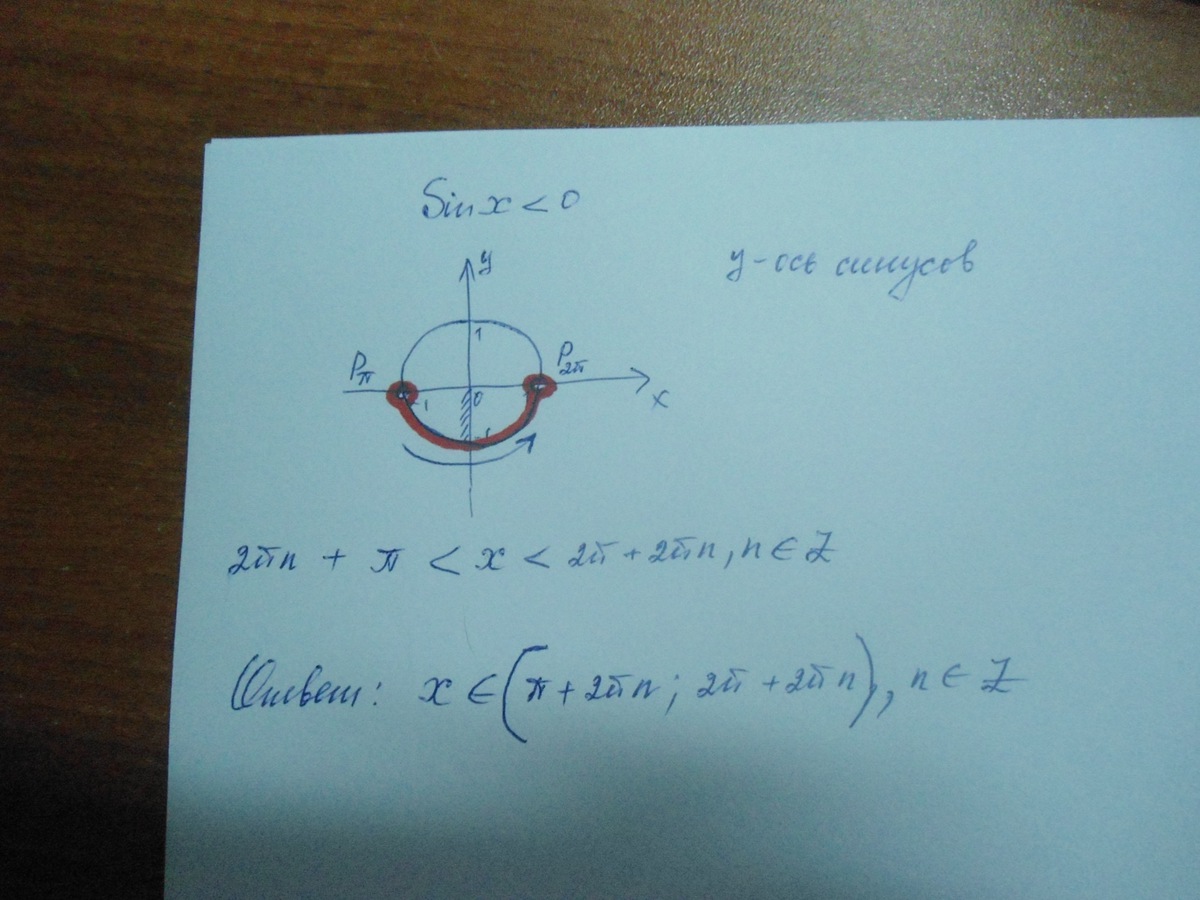 Sin x < 0
y - ось синусов
y
1
Pπ
P2π
-1
0
x
-1
2πn + π < x < 2π + 2πn, n ∈ Z
Ответ: x ∈ (π + 2πn; 2π + 2πn), n ∈ Z